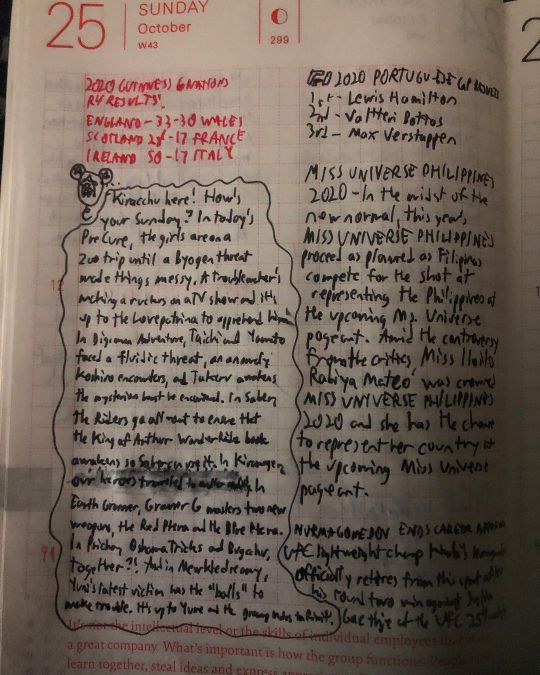 25
SUNDAY
October
W43
299
2020 GUINNESS 6 NATIONS
R4 RESULTS:
ENGLAND - 33-30 WALES
SCOTLAND 28-17 FRANCE
IRELAND 50-17 ITALY
Kiracchu here! How's
your Sunday? In today's
PreCure, the girls are on a
zoo trip until a Byogen threat
made things messy. A Troublemaker's
making a ruckus on a TV show and it's
up to the Lovepatrina to apprehend him.
In Digimon Adventure, Taichi and Yamato
faced a fluidic threat, an anomaly
Koshiro encounters, and Takeru awakens
the mysterion must be examined. In Saber,
the Riders go all-out to ensure that
the King of Arthur Wonder Ride book
awakens so Saber can use it. In Kiramager,
our heroes traveled to In
Earth Granner, Granner G masters two new
weapons, the Red Ptera and the Blue Ptera.
In
together?! And in Mewkledreamy,
Yuni's latest victim has the "balls" to
make trouble. It's up to Yume and the to
2020 PORTUGUESE GP RESULTS
1st - Lewis Hamilton
2nd - Valtteri Bottas
3rd - Max Verstappen
MISS UNIVERSE PHILIPPINES
2020 - In the midst of the
new normal, this years
MISS UNIVERSE PHILIPPINES
proceed as planned as Filipinas
compete for the shot at
representing the Philippines at
the upcoming Ms. Universe
pageant. Amid the controversy
from the critics, Miss Iloilo
Rabiya Mateo was crowned
MISS UNIVERSE PHILIPPINES
2020 and she has the chance
to represent her country at
the upcoming Miss Universe
pageant.
NURMAGOMEDOV ENDS CAREER
UFC lightweight champ
officially retires from this sport after
his round two win against
of the UFC 254
It's not the intellectual level or the skills of individual employees
a great company. What's important is how the group functions. People
learn together, steal ideas and express